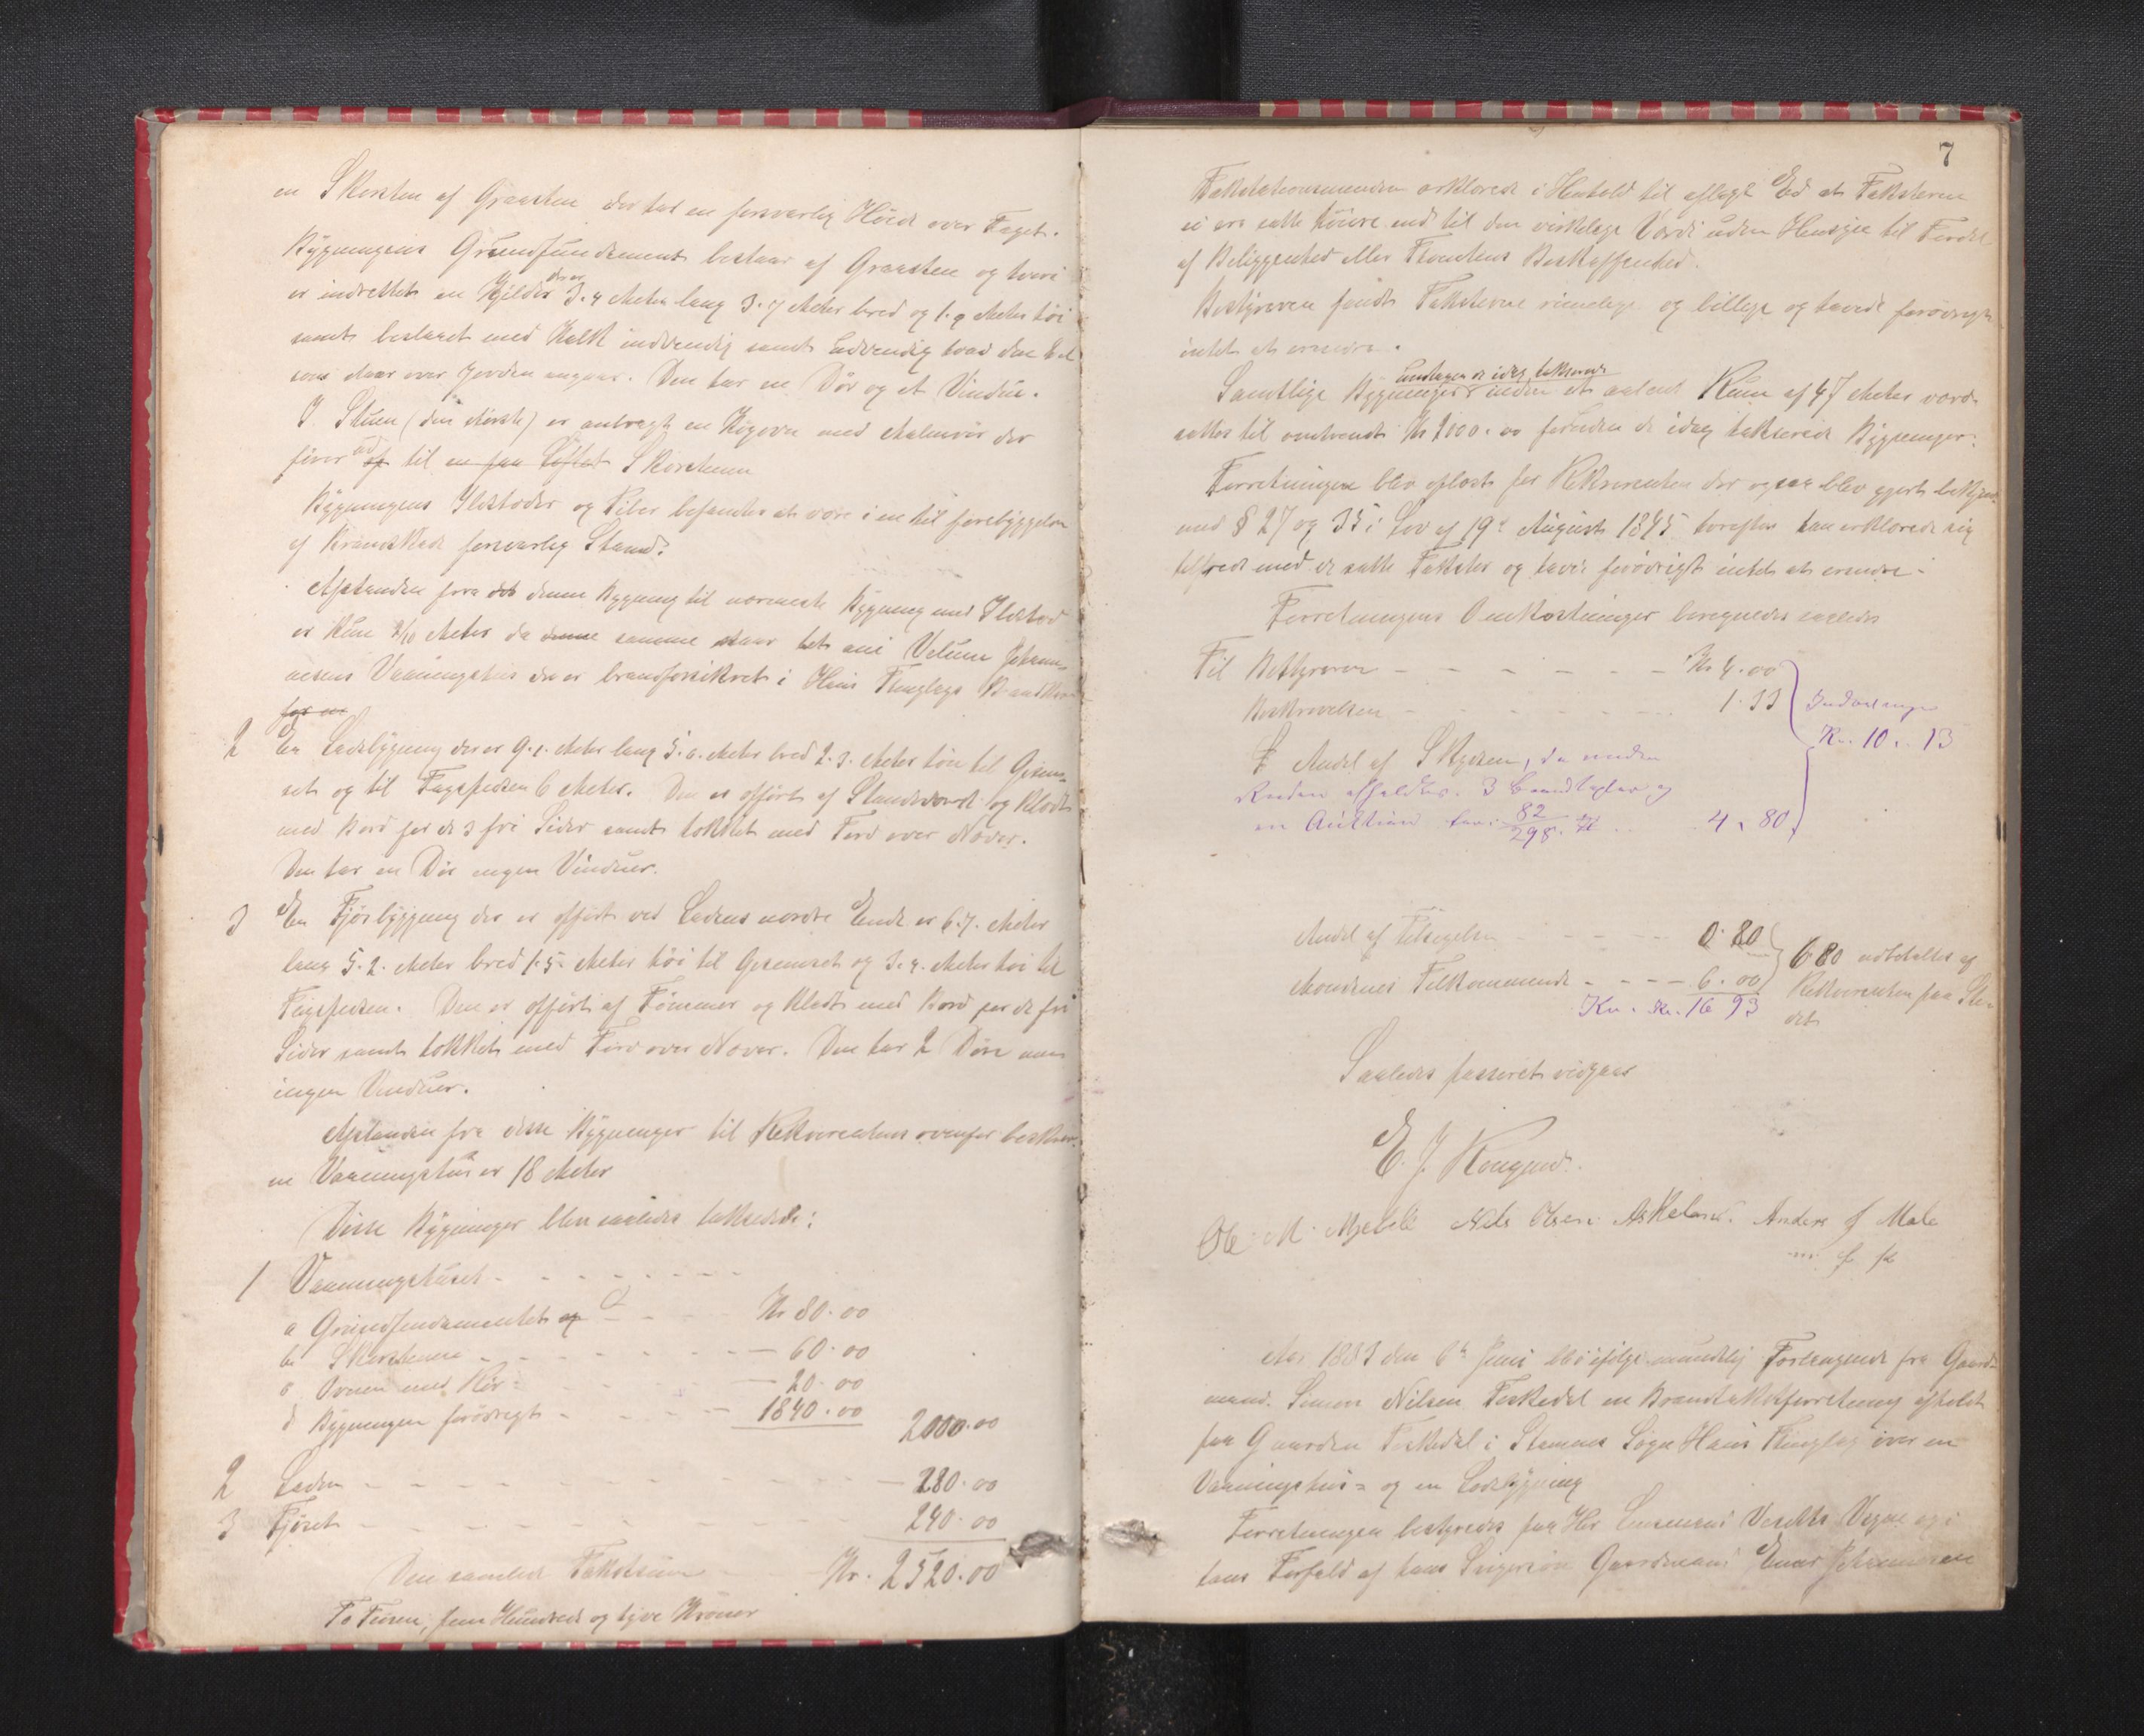 en Skorsten af Graasten der har en forsvarlig Høide over Taget.
Bygningens Grundfundament bestaar af Graasten og hvori
er indrettet en Kjelder der er 3.4 Meter lang 3.7 Meter bred og 1.9 Meter høi
samt beslaaet med Kalk indvendig samt udvendig hvad den Del
som staar over Jorden angaar. Den har en Dør og et Vindue.
I Stuen (den større) er anbragt en Kogovn med Malmrør der
fører ud til en paa Loftet Skorstenen
Bygningens Ildsteder og Piber befandtes at være i en til forebyggelse
af Brandskade forsvarlig Stand.
Afstanden fra denne Bygning til nærmeste Bygning med Ildsted
er kun Meter da samme staar tet ind Johan-
nesens Vaaningshus der er brandforsikret i Hans Tinglags
for en
2 En Ladebygning der er 9.1. Meter lang 5.6. Meter bred 2.3. Meter høi til Gesim-
set og til Tagspidsen 6 Meter. Den er opført af Standværk og klædt
med Bord paa de 3 fri Sider samt tækket med Torv over Næver.
Den har en Dør ingen Vinduer.
3 En Fjøsbygning der er opført ved Ladens nordre Ende er 6.7. Meter
lang 5.2. Meter bred 1.5 Meter høi til Gesimset og 3.4. Meter høi til
Tagspidsen. Den er opført af Tømmer og klædt med Bord paa de fri
Sider samt tækket med Torv over Næver. Den har 2 Døre men
ingen Vinduer.
Afstanden fra disse Bygninger til Rekvirentens ovenfor beskrev-
ne Vaaningshus er 18 Meter
Disse Bygninger blev saaledes takserede:
1 Vaaningshuset
a Grundfundamentet og Kr 80.00
b Skorstenen 60.00
c Ovnen med Rør 20.00
d Bygningen forøvrigt 1840.00 2000.00
2 Laden 280.00
3 Fjøset 240.00
Den samlede Takstsum Kr. 2520.00
To Tusen, fem Hundrede og tyve Kroner
7
Takstationsmændene erklærede i Henhold til aflagt Ed at Taksterne
ei ere satte høiere end til den virkelige Værdi uden Hensyn til Fordel
af Beliggenhed eller Tomtens Beskaffenhed.
Bestyreren fandt Taksterne rimelige og billige og havde forøvrigt
intet at erindre.
undtagen de idag takserede
Samtlige Bygninger inden et Rum af 47 Meter værd-
sattes til omtrendt Kr 2000.00 foruden de idag takserede Bygninger.
Forretningen blev oplæst for Rekvirenten der ogsaa blev gjort bekjendt
med § 27 og 35 i Lov af 19de August 1845 hvorefter han erklærede sig
tilfreds med de satte Takster og havde forøvrigt intet at erindre.
Forretningens Omkostninger beregnedes saaledes
Til Bestyreren Kr 4.00
Beskrivelsen 1.33 Indbetales
Kr. 10.. 13
Andel af Skydsen, da under
Reisen afholdtes 3 Brandtakster og
en Auktion 82/298 4.80
Andel af Tilsigelsen 0.80
Mændenes Tilkommende 6.00 6 80 udbetaltes af
Rekvirenten paa Ste-
det
Kr. 16 93
Saaledes passeret vidgaar
E. J.
Ole M. Mjelde Nils Olsen Anders J Male
m f p
Aar 1883 den 6te Juni blev ifølge mundtlig Forlangende fra Gaard-
mand Simon Nilsen en Brandtakstforretning afholdt
paa Gaarden i Stamnes Sogn Hans Tinglag over en
Vaaningshus- og en Ladebygning
Forretningen bestyredes paa Hr Lensmand Vegne og i
hans Forfald af hans Svigersøn Gaardmand Johannesen